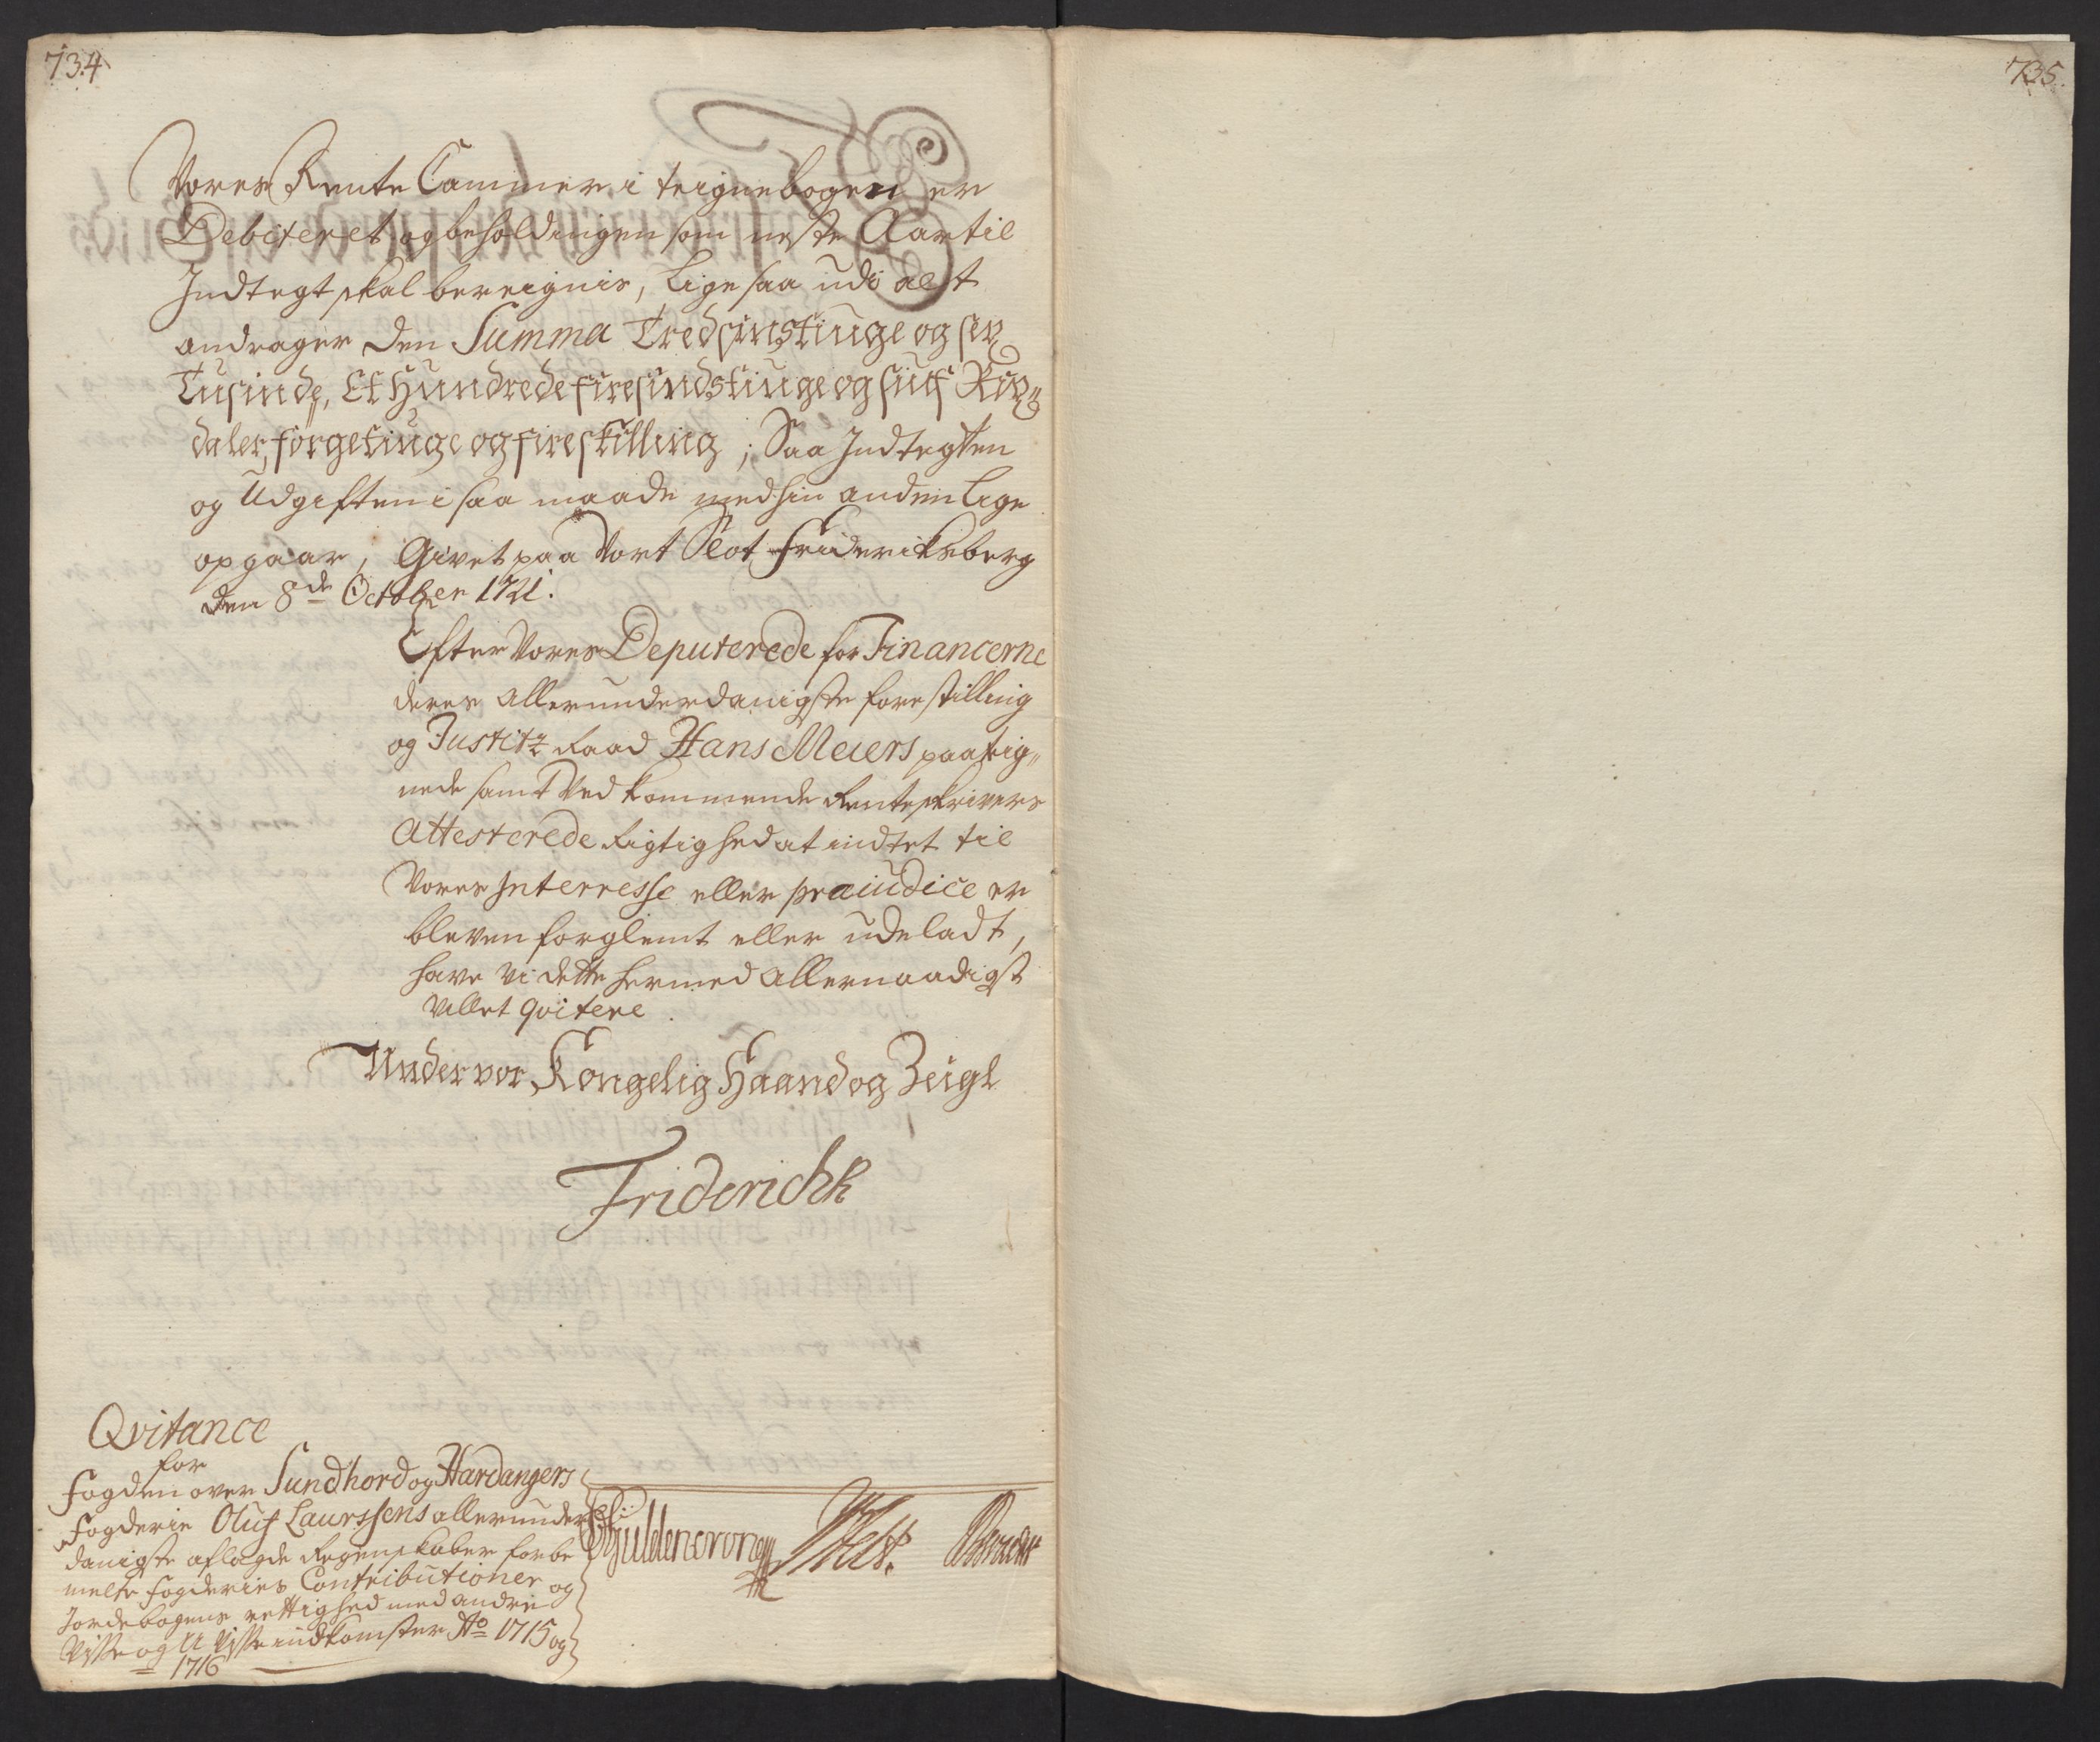 734
735
Vores Rente Cammer i teignebogen er
Debiteret, og beholdingen som neste Aar til
Indtegt skal bereignis, lige saa udi alt
andrager den Summa Tredsinstiuge og sex
Tusinde, Et Hundrede firesindstiuge og siuf Rix¬
daler, førgetiuge og fire skilling; Saa Indtegten
og Udgiften i saa maade med hin anden lige
opgaar, Givet paa Vort Slot Frideriksberg
den 8de October 1721.
Efter Vores Deputerede for Financerne
deres allerunderdanigste forestilling
og Justitz Raad Hans Meiers paateig¬
nede samt Vedkommende Renteskrivers
Attesterede Rigtighed at indtet til
Vores Interresse eller præiudice er
bleven forglemt eller udeladt,
have Vi dette hermed allernaadigst
villet qvitere.
Under vor Kongelig Haand og Zeigl
Friderich R
Qvitance
for
Fogden over Sundhord og Hardangers
Fogderie Oluf Laurssens allerunder
danigste aflagde Regenskaber for be
melte Fogderies Contributioner og
Jordebogens rettighed med andre
Visse og U Visse indkomster Ao 1715 og
1716
Guldencrone